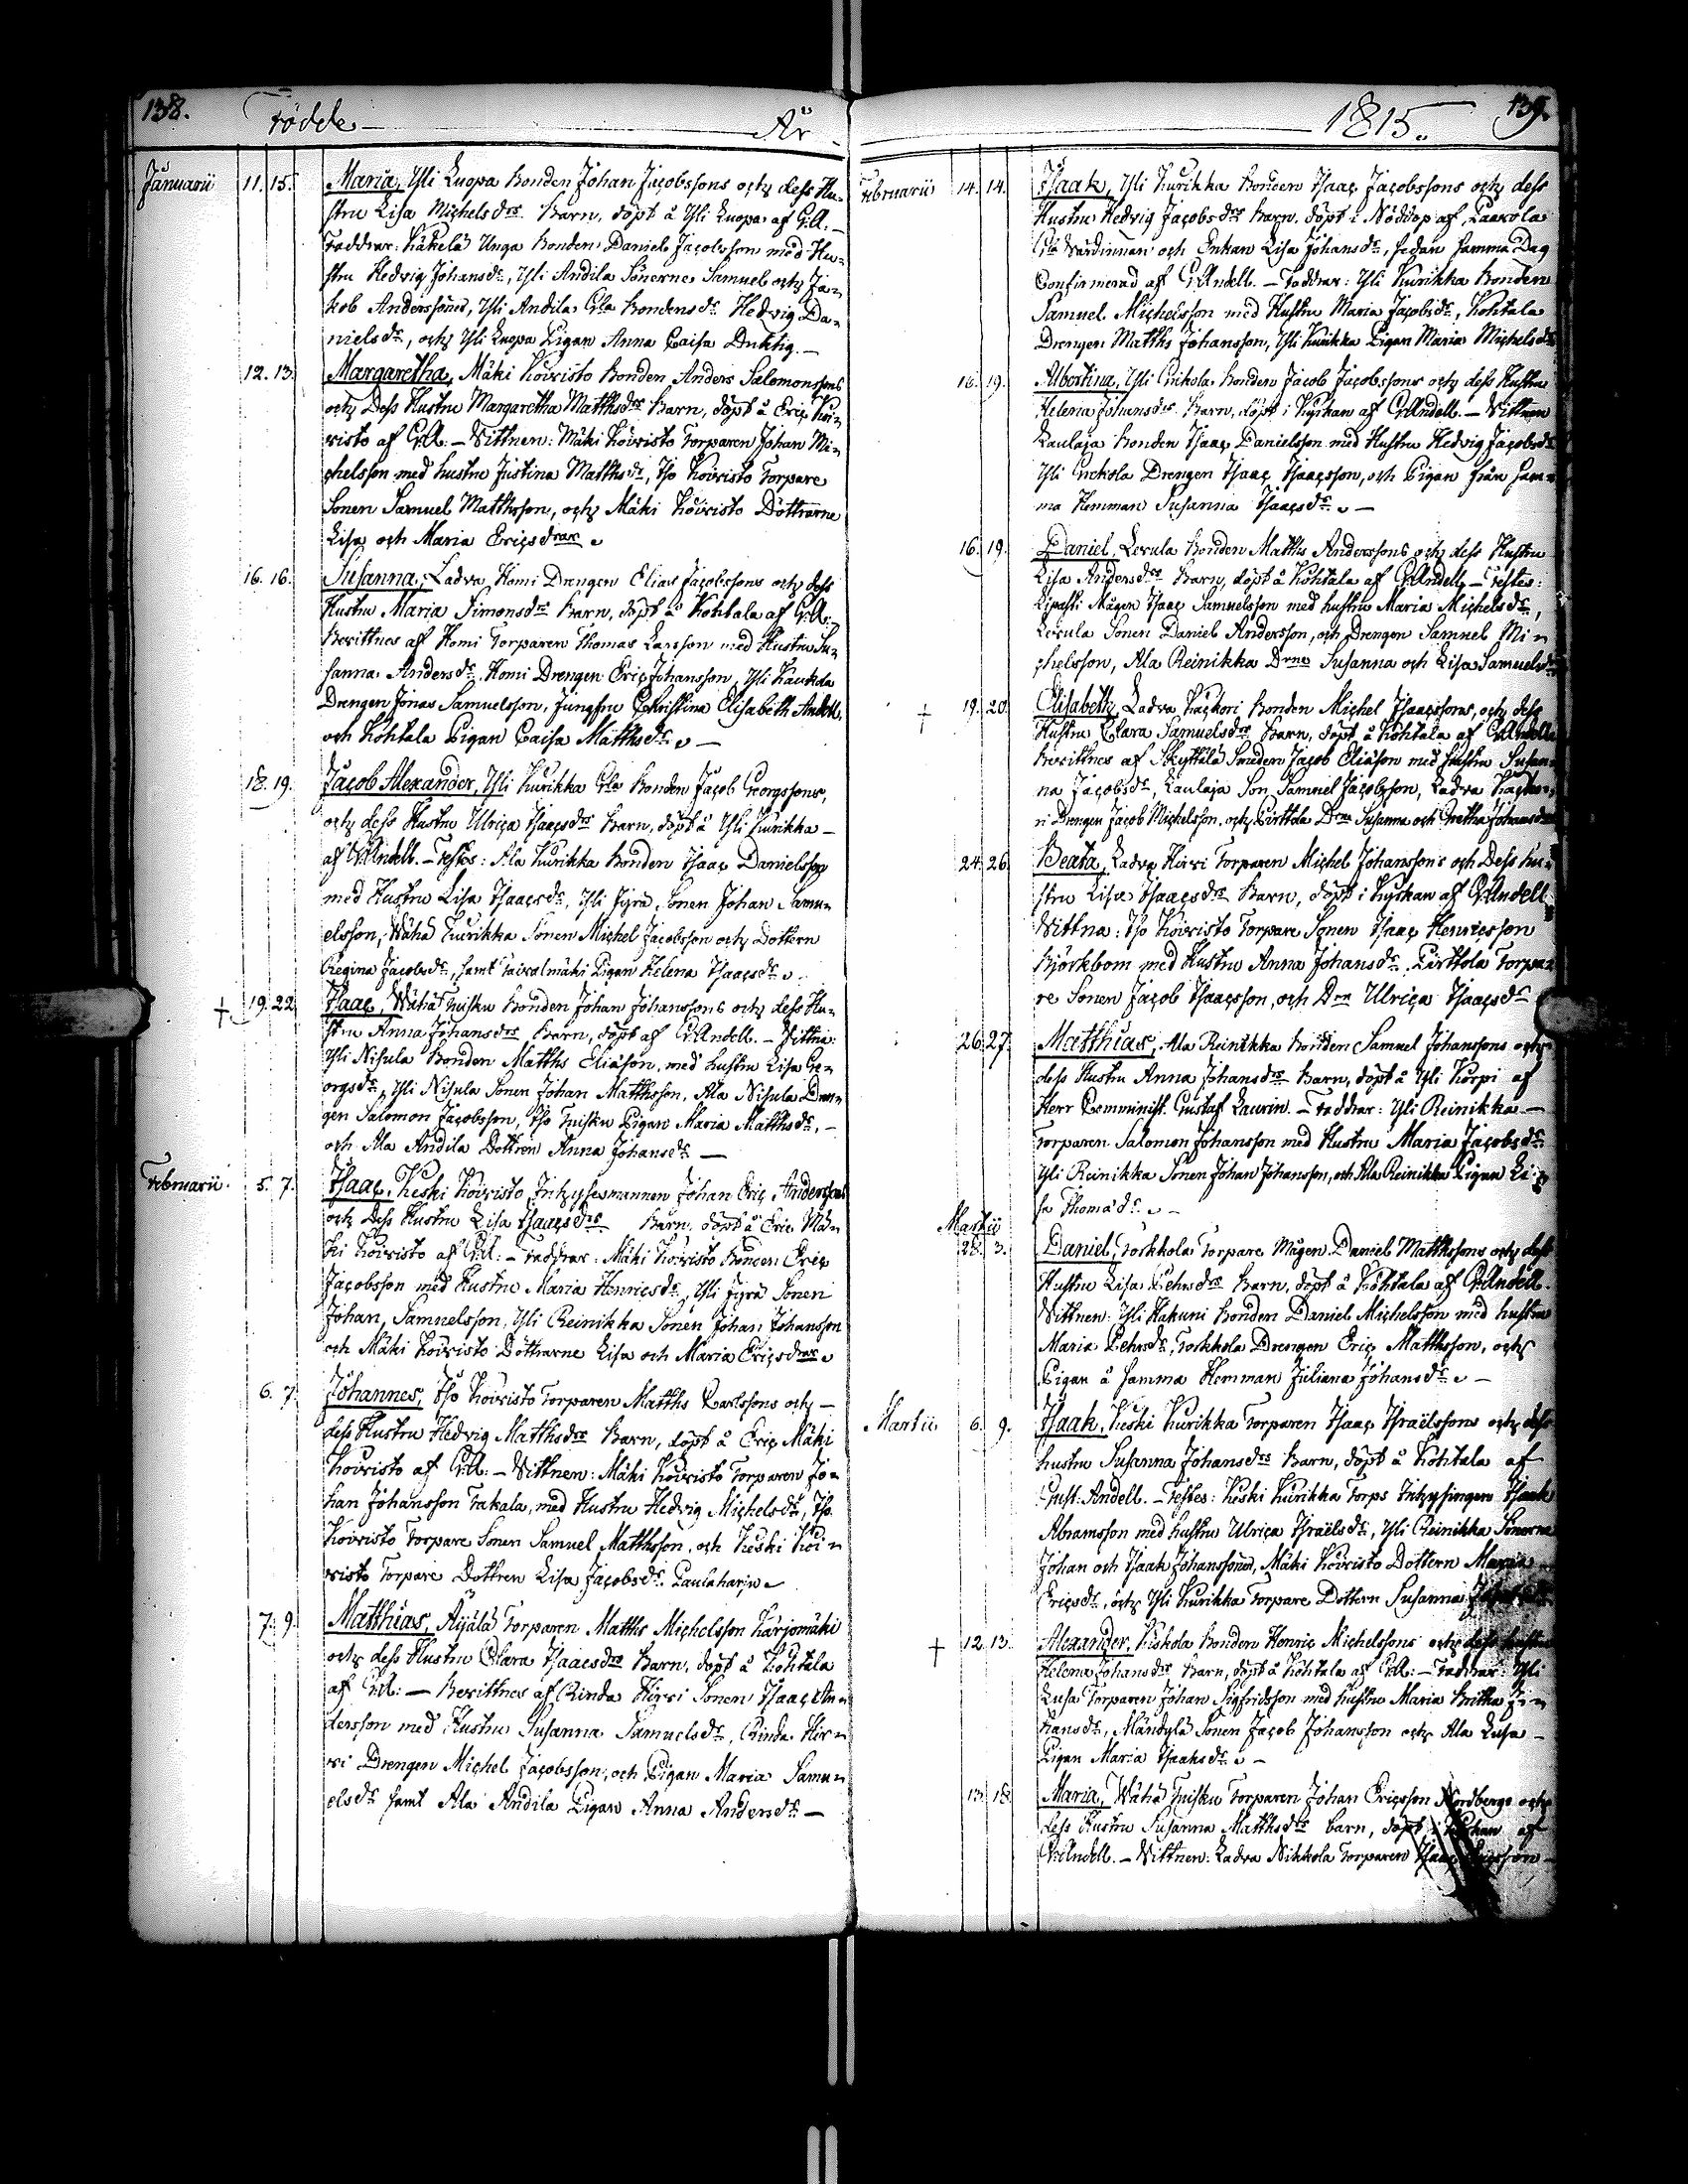 138.
Födde
År
Januarii 11. 15. Maria, Yli Luopa Bonden Johan Jacobssons och dess Hu-
stru Lisa Michels drs Barn, döpt å Yli Luopa af G:A. -
Faddrar: Käkelä Unga Bonden Daniel Jacobsson med Hu-
stru Hedvig Johansdr, Yli Andila Sönerne Samuel och Ja-
kob Anderssöner, Yli Andila Gla Bondens dr Hedvig Da-
nielsdr, och Yli Luopa Pigan Anna Caisa Duktig. -
12. 13. Margaretha, Mäki Koivisto Bonden Anders Salomonssons
och Dess Hustru Margaretha Matthsdrs Barn, döpt å Eric Koi-
visto af G:A: - Vittnen: Mäki Koivisto Torparen Johan Mi-
chelsson med hustru Justina Matthsdr, Iso Koivisto Torpare
Sonen Samuel Matthsson, och Mäki Koivisto Döttrarne
Lisa och Maria Ericsdrar.
16. 16. Susanna, Ladva Homi Drengen Elias Jacobssons och dess
Hustru Maria Simonsdrs Barn, döpt å Kohtala af G:A:
Bevittnes af Homi Torparen Thomas Larsson med Hustru Su-
sanna Andersdr, Homi Drengen Eric Johansson, Yli
Drengen Jonas Samuelsson, Jungfru Christina Elisabeth Andell,
och Kohtala Pigan Caisa Matthsdr. -
18. 19. Jacob Alexander, Yli Kurikka Gla Bonden Jacob Georgssons,
och dess Hustru Ulrica Isaacsdrs Barn, döpt å Yli Kurikka -
af G:Andell. - Testes: Ala Kurikka Bonden Isaac Danielsson
med Hustru Lisa Isaacsdr, Yli Jyrä Sonen Johan Samu-
elsson, Wähä Kurikka Sonen Michel Jacobsson och Dottern
Regina Jacobsdr, samt Pigan Helena Isaacsdr.
† 19. 22. Isaac, Wähä Tuisku Bonden Johan Johanssons och dess Hu-
stru Anna Johansdrs Barn, döpt af G:Andell. - Vittna:
Yli Nisula Bonden Matths Eliäson, med hustru Lisa Ge-
orgsdr, Yli Nisula Sonen Johan Matthsson, Ala Nisula Dren-
gen Salomon Jacobsson, Iso Tuisku Pigan Maria Matthsdr, -
och Ala Andila Dottren Anna Johansdr -
Februarii. 5. 7. Isaac, Keski Koivisto Inhysesmannen Johan Eric Anderssons
och Dess Hustru Lisa Isaacsdrs Barn, döpt å Eric Mä-
ki Koivisto af G:A: - Faddrar: Mäki Koivisto Bonden Eric
Jacobsson med Hustru Maria Henricsdr, Yli Jyrä Sonen
Johan Samuelsson, Yli Reinikka Sonen Johan Johansson
och Mäki Koivisto Döttrarne Lisa och Maria Ericsdrar.
6. 7. Johannes, Iso Koivisto Torparen Matths Carlssons och -
dess Hustru Hedvig Matthsdrs Barn, döpt å Eric Mäki
Koivisto af G:A: - Vittnen: Mäki Koivisto Torparen Jo-
han Johansson Takala, med Hustru Hedvig Michelsdr, Iso
Koivisto Torpare Sonen Samuel Matthsson, och Keski Koi-
visto Torpare Dottren Lisa Jacobsdr Paulaharju.
7. 9. Matthias, Äijälä Torparen Matths Michelsson Harjomäki
och dess Hustru Clara Isaacsdrs Barn, döpt å Kohtala
af G:A: - Bevittnes af Rinda Hirvi Sonen Isaac An-
dersson med Hustru Susanna Samuelsdr, Rinda Hir-
vi Drengen Michel Jacobsson, och Pigan Maria Samu-
elsdr samt Ala Andila Pigan Anna Andersdr -
1815.
139.
Februarii 14. 14. Isaak, Yli Kurikka Bonden Isaac Jacobssons och dess
Hustru Hedvig Jacobsdrs Barn, döpt i Nöddop af Paavola
Gla Värdinnan och Enkan Lisa Johansdr, sedan samma Dag
Confirmerad af G:Andell. - Faddrar: Yli Kurikka Bonden
Samuel Michelsson med Hustru Maria Jacobsdr, Kohtala
Drengen Matths Johansson, Yli Kurikka Pigan Maria Michelsdr
16. 19. Albertina, Yli Bonden Jacob Jacobssons och dess Hustru
Helena Johansdrs Barn, döpt i Kyrkan af G:Andell. - Vittnen
Laulaja Bonden Isaac Danielsson med Hustru Hedvig Jacobsdr
Yli Drengen Isaac Isaacsson, och Pigan från sam-
ma Hemman Susanna Isaacsdr. -
16. 19. Daniel, Levula Bonden Matths Anderssons och dess Hustru
Lisa Andersdrs Barn, döpt å Kohtala af G:Andell. - Testes:
Lipasti Mågen Isaac Samuelsson med hustru Maria Michelsdr,
Levula Sonen Daniel Andersson, och Drengen Samuel Mi-
chelsson, Ala Reinikka Drne Susanna och Lisa Samuelsdr
† 19. 20. Elisabeth, Ladva Bonden Michel Isaacssons, och dess
Hustru Clara Samuelsdrs Barn, döpt å Kohtala af G:Andell
Bevittnes af Skyttälä Smeden Jacob Eliäson med Hustru Susan-
na Jacobsdr, Laulaja Son Samuel Jacobsson, Ladva
ri Drengen Jacob Michelsson, och Pirttola Drne Susanna och Gretha Johansdr
24. 26. Beata, Ladva Hirvi Torparen Michel Johanssons och Dess hu-
stru Lisa Isaacsdrs Barn, döpt i Kyrkan af G:Andell
Vittna: Iso Koivisto Torpare Sonen Isaac Henricsson
Björkbom med Hustru Anna Johansdr, Pirttola Torpa-
re Sonen Jacob Isaacsson, och Drn Ulrica Isaacsdr
26. 27. Matthias, Ala Reinikka Bonden Samuel Johanssons och
dess Hustru Anna Johansdrs Barn, döpt å Yli Korpi af
Herr Comminist. Gustaf Laurin. - Faddrar: Yli Reinikka -
Torparen Salomon Johansson med Hustru Maria Jacobsdr
Yli Reinikka Sonen Johan Johansson, och Ala Reinikka Pigan Li-
sa Thomædr. -
Martii
28. 3. Daniel, Torkkola Torpare Mågen Daniel Matthssons och dess
Hustru Lisa Pehrsdrs Barn, döpt å Kohtala af G:Andell.
Vittnen: Yli Hakuni Bonden Daniel Michelsson med hustru
Maria Pehrsdr, Torkkola Drengen Eric Matthsson, och
Pigan å samma Hemman Juliana Johansdr. -
Martii 6. 9. Isaak, Keski Kurikka Torparen Isaac Israëlssons och dess
hustru Susanna Johansdrs Barn, döpt å Kohtala af
Gust: Andell. - Testes: Keski Kurikka Torps Inhysingen Isaak
Abramsson med hustru Ulrica Israëlsdr, Yli Reinikka Sönerna
Johan och Isaak Johanssöner, Mäki Koivisto Dottern Maria
Ericsdr, och Yli Kurikka Torpare Dottern Susanna
† 12. 13. Alexander, Kiskola Bonden Henric Michelssons och dess hustru
Helena Johansdrs Barn, döpt å Kohtala af G:A: - Faddrar: Yli
Lusa Torparen Johan Sigfridsson med hustru Maria Britha Jo-
hansdr, Mändylä Sonen Jacob Johansson och Ala Lusa -
Pigan Maria Isaaksdr. -
13. 18. Maria, Wähä Tuisku Torparen Johan Ericsson Nordbergs och
dess Hustru Susanna Matthsdrs barn, döpt i Kyrkan af
G:Andell. - Vittnen: Ladva Nikkola Torparen Isaac Ericsson -